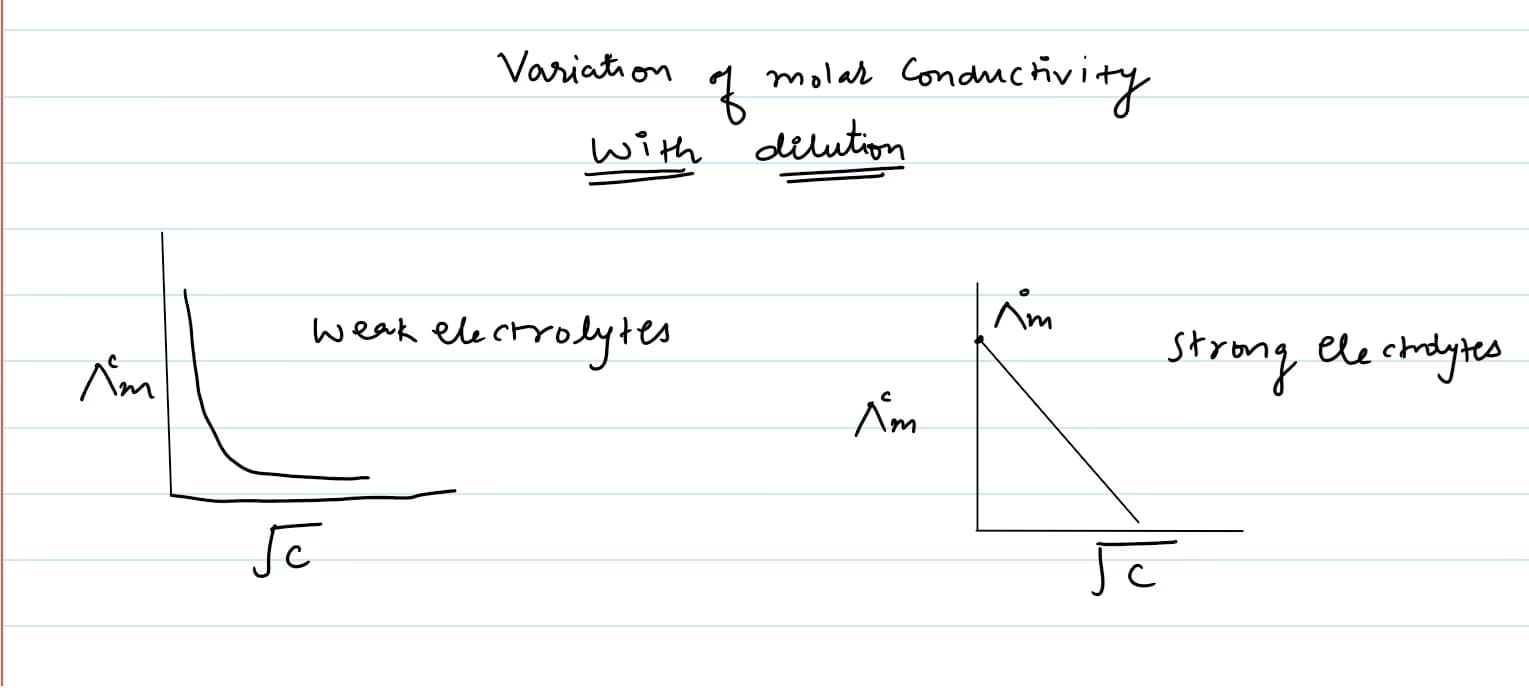 Variation of molar Conductivity
with dilution
weak electrolytes
Λᶜm
√c
Λ°m
strong electrolytes
Λᶜm
√c